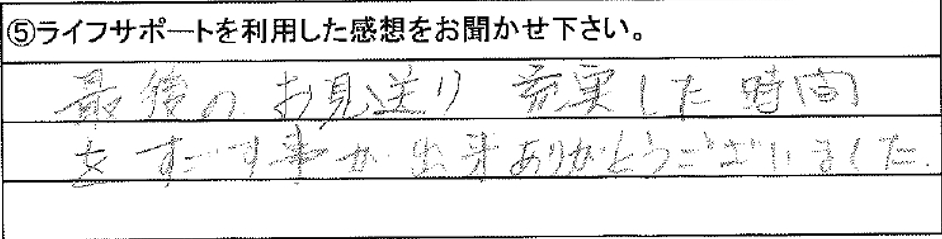 ⑤ライフサポートを利用した感想をお聞かせ下さい。
最後のお見送り 充実した時間
をすごす事が出来ありがとうございました.